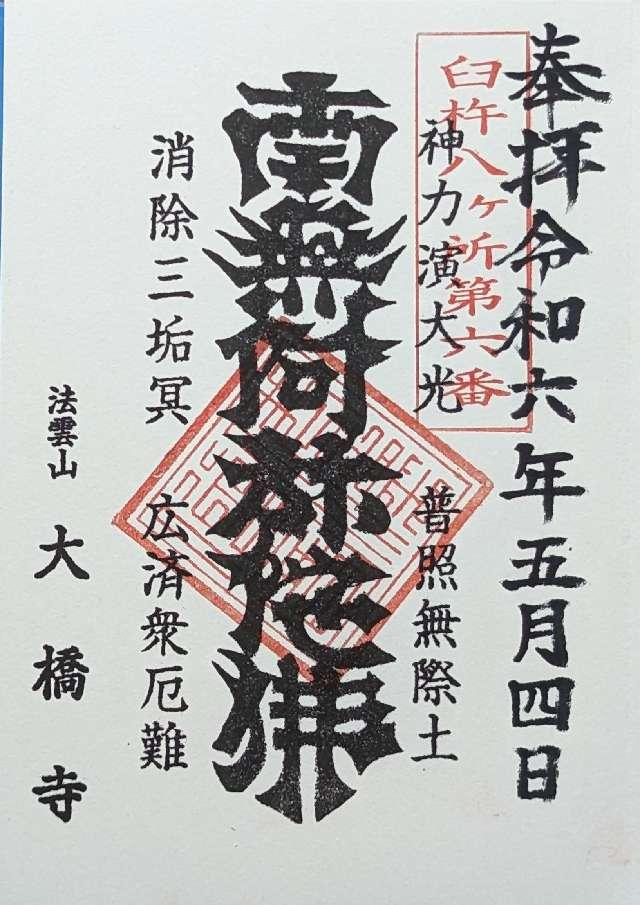 奉拝令和六年五月四日
臼杵八ヶ所第六番
神力演大光 普照無際土
南無阿弥陀佛
消除三垢冥 広済衆厄難
法雲山 大橋寺